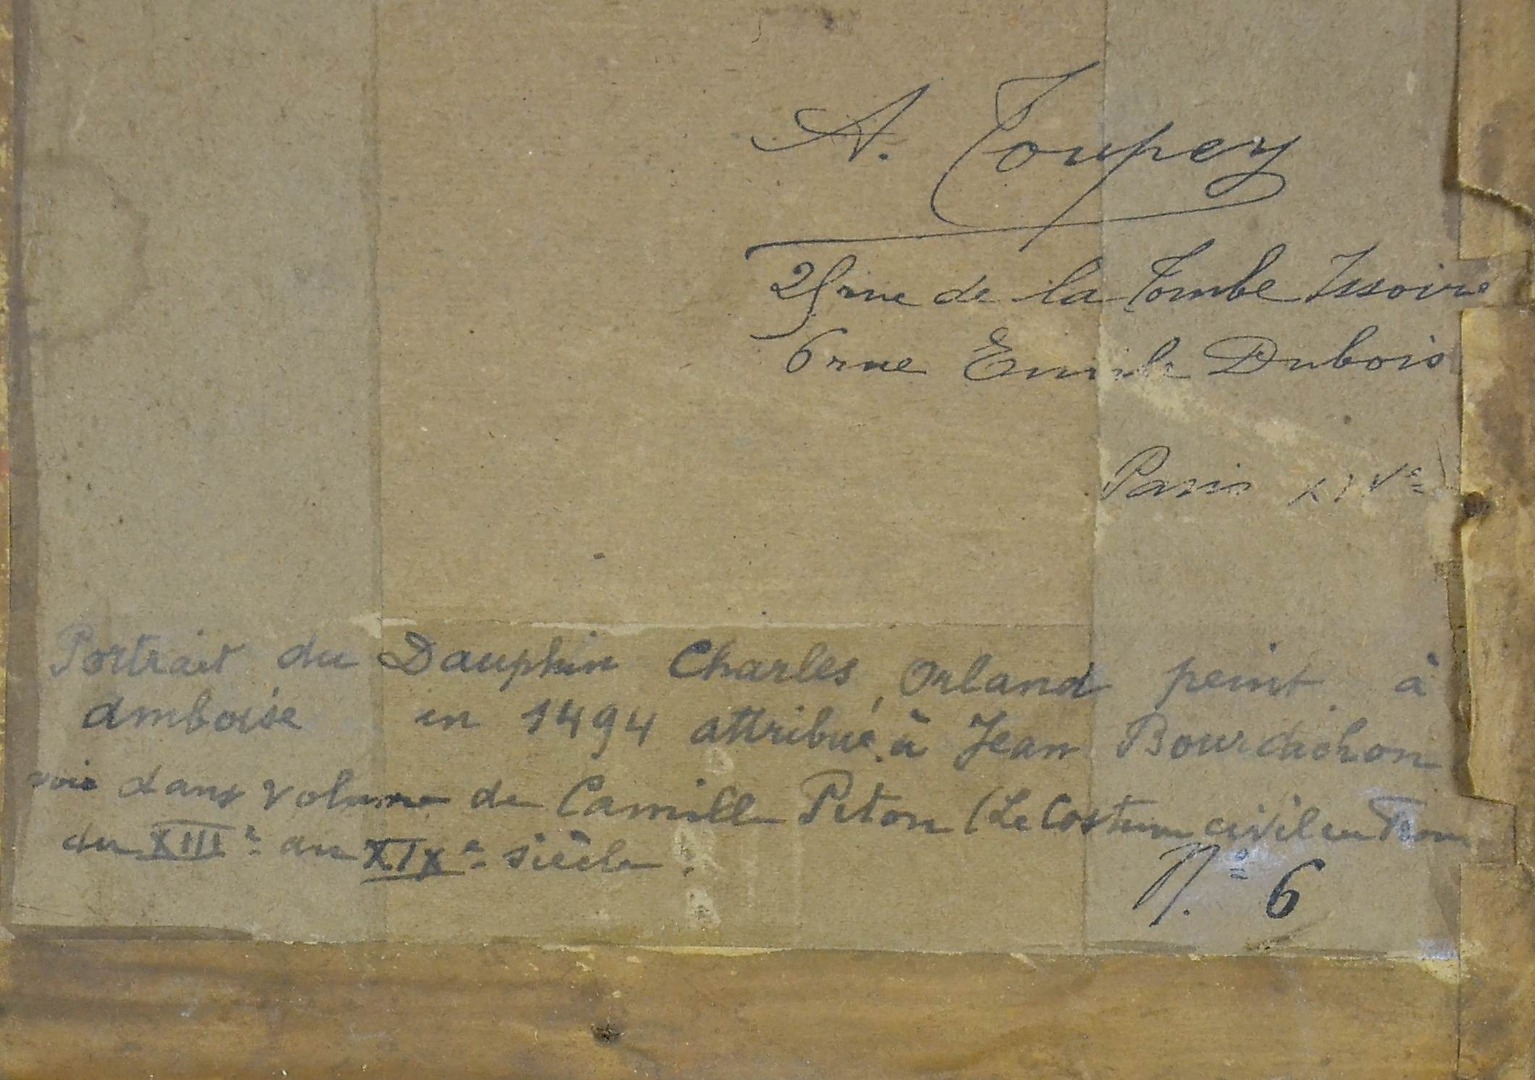 A. Toupey
25 rue de la Tombe Issoire
6 rue Emile Dubois
Paris XIVe
Portrait du Dauphin Charles, Orland peint à
amboise en 1494 attribué à Jean Bourdichon
voir dans volume de Camille Piton (Le Costume civil en Fran
du XIIIe au XIXe siècle.
N.o 6